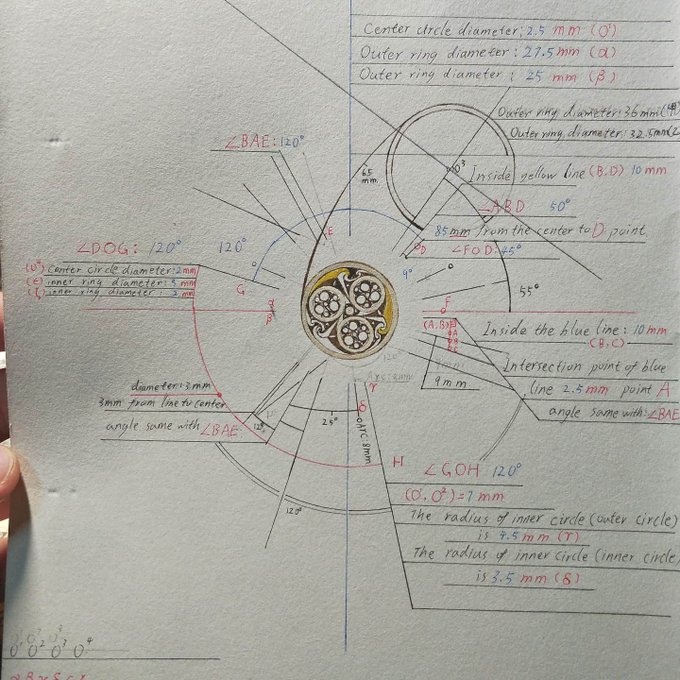 Center circle diameter: 2.5 mm (O')
Outer ring diameter: 27.5 mm (α)
Outer ring diameter: 25 mm (β)
Outer ring diameter: 36mm
Outer ring diameter: 32.5mm
∠BAE: 120°
65 mm
O³
Inside yellow line (B,D) 10 mm
∠ABD 50°
E
85mm from the center to D point
∠DOG: 120° 120°
D
∠FOD: 45°
(O⁴) Center circle diameter: 2 mm
(ε) inner ring diameter: 5 mm
inner ring diameter: 3 mm
G
9°
55°
α
β
F
(A,B)
Inside the blue line: 10mm
(B,C)
120°
Intersection point of blue
9mm
line 2.5mm point A
angle same with: ∠BAE
diameter: 3mm
3mm from line to center
angle same with ∠BAE
γ
δ
25°
ARC: 8mm
125°
H
∠GOH 120°
(O', O²) = 7 mm
The radius of inner circle (outer circle)
is 4.5 mm (γ)
The radius of inner circle (inner circle
is 3.5 mm (δ)
120°
O¹ O² O³ O⁴